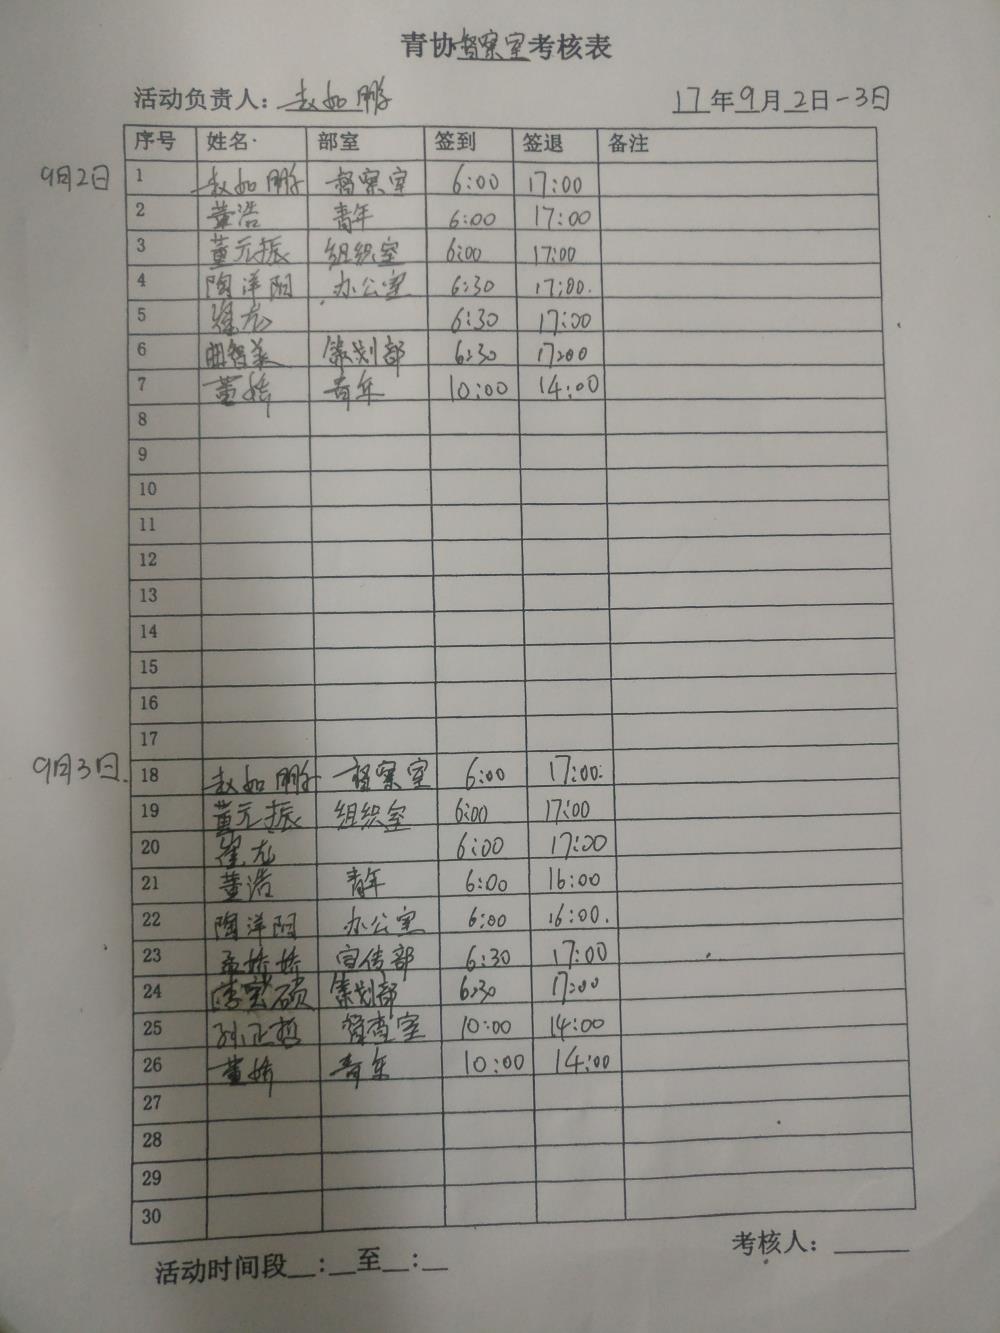 青协督察室考核表
活动负责人：赵如鹏 17年9月2日-3日
序号 姓名 部室 签到 签退 备注
9月2日 1 赵如鹏 督察室 6:00 17:00
2 董浩 青年 6:00 17:00
3 董元振 组织室 6:00 17:00
4 陶洋阳 办公室 6:30 17:00.
5 龙 6:30 17:00
6 策划部 6:30 17:00
7 董娇 青年 10:00 14:00
8
9
10
11
12
13
14
15
16
17
9月3日. 18 赵如鹏 督察室 6:00 17:00
19 董元振 组织室 6:00 17:00
20 崔龙 6:00 17:00
21 董浩 青年 6:00 16:00
22 陶洋阳 办公室 6:00 16:00.
23 孟娇娇 宣传部 6:30 17:00
24 策划部 6:30 17:00
25 孙正哲 督查室 10:00 14:00
26 董娇 青年 10:00 14:00
27
28
29
30
活动时间段__:__至__:__ 考核人：_____